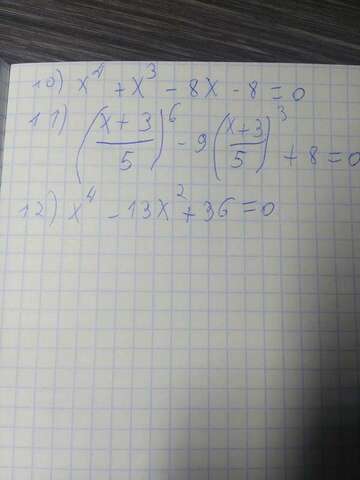 10) x⁴ + x³ - 8x - 8 = 0
11) ((x+3)/5)⁶ - 9((x+3)/5)³ + 8 = 0
12) x⁴ - 13x² + 36 = 0